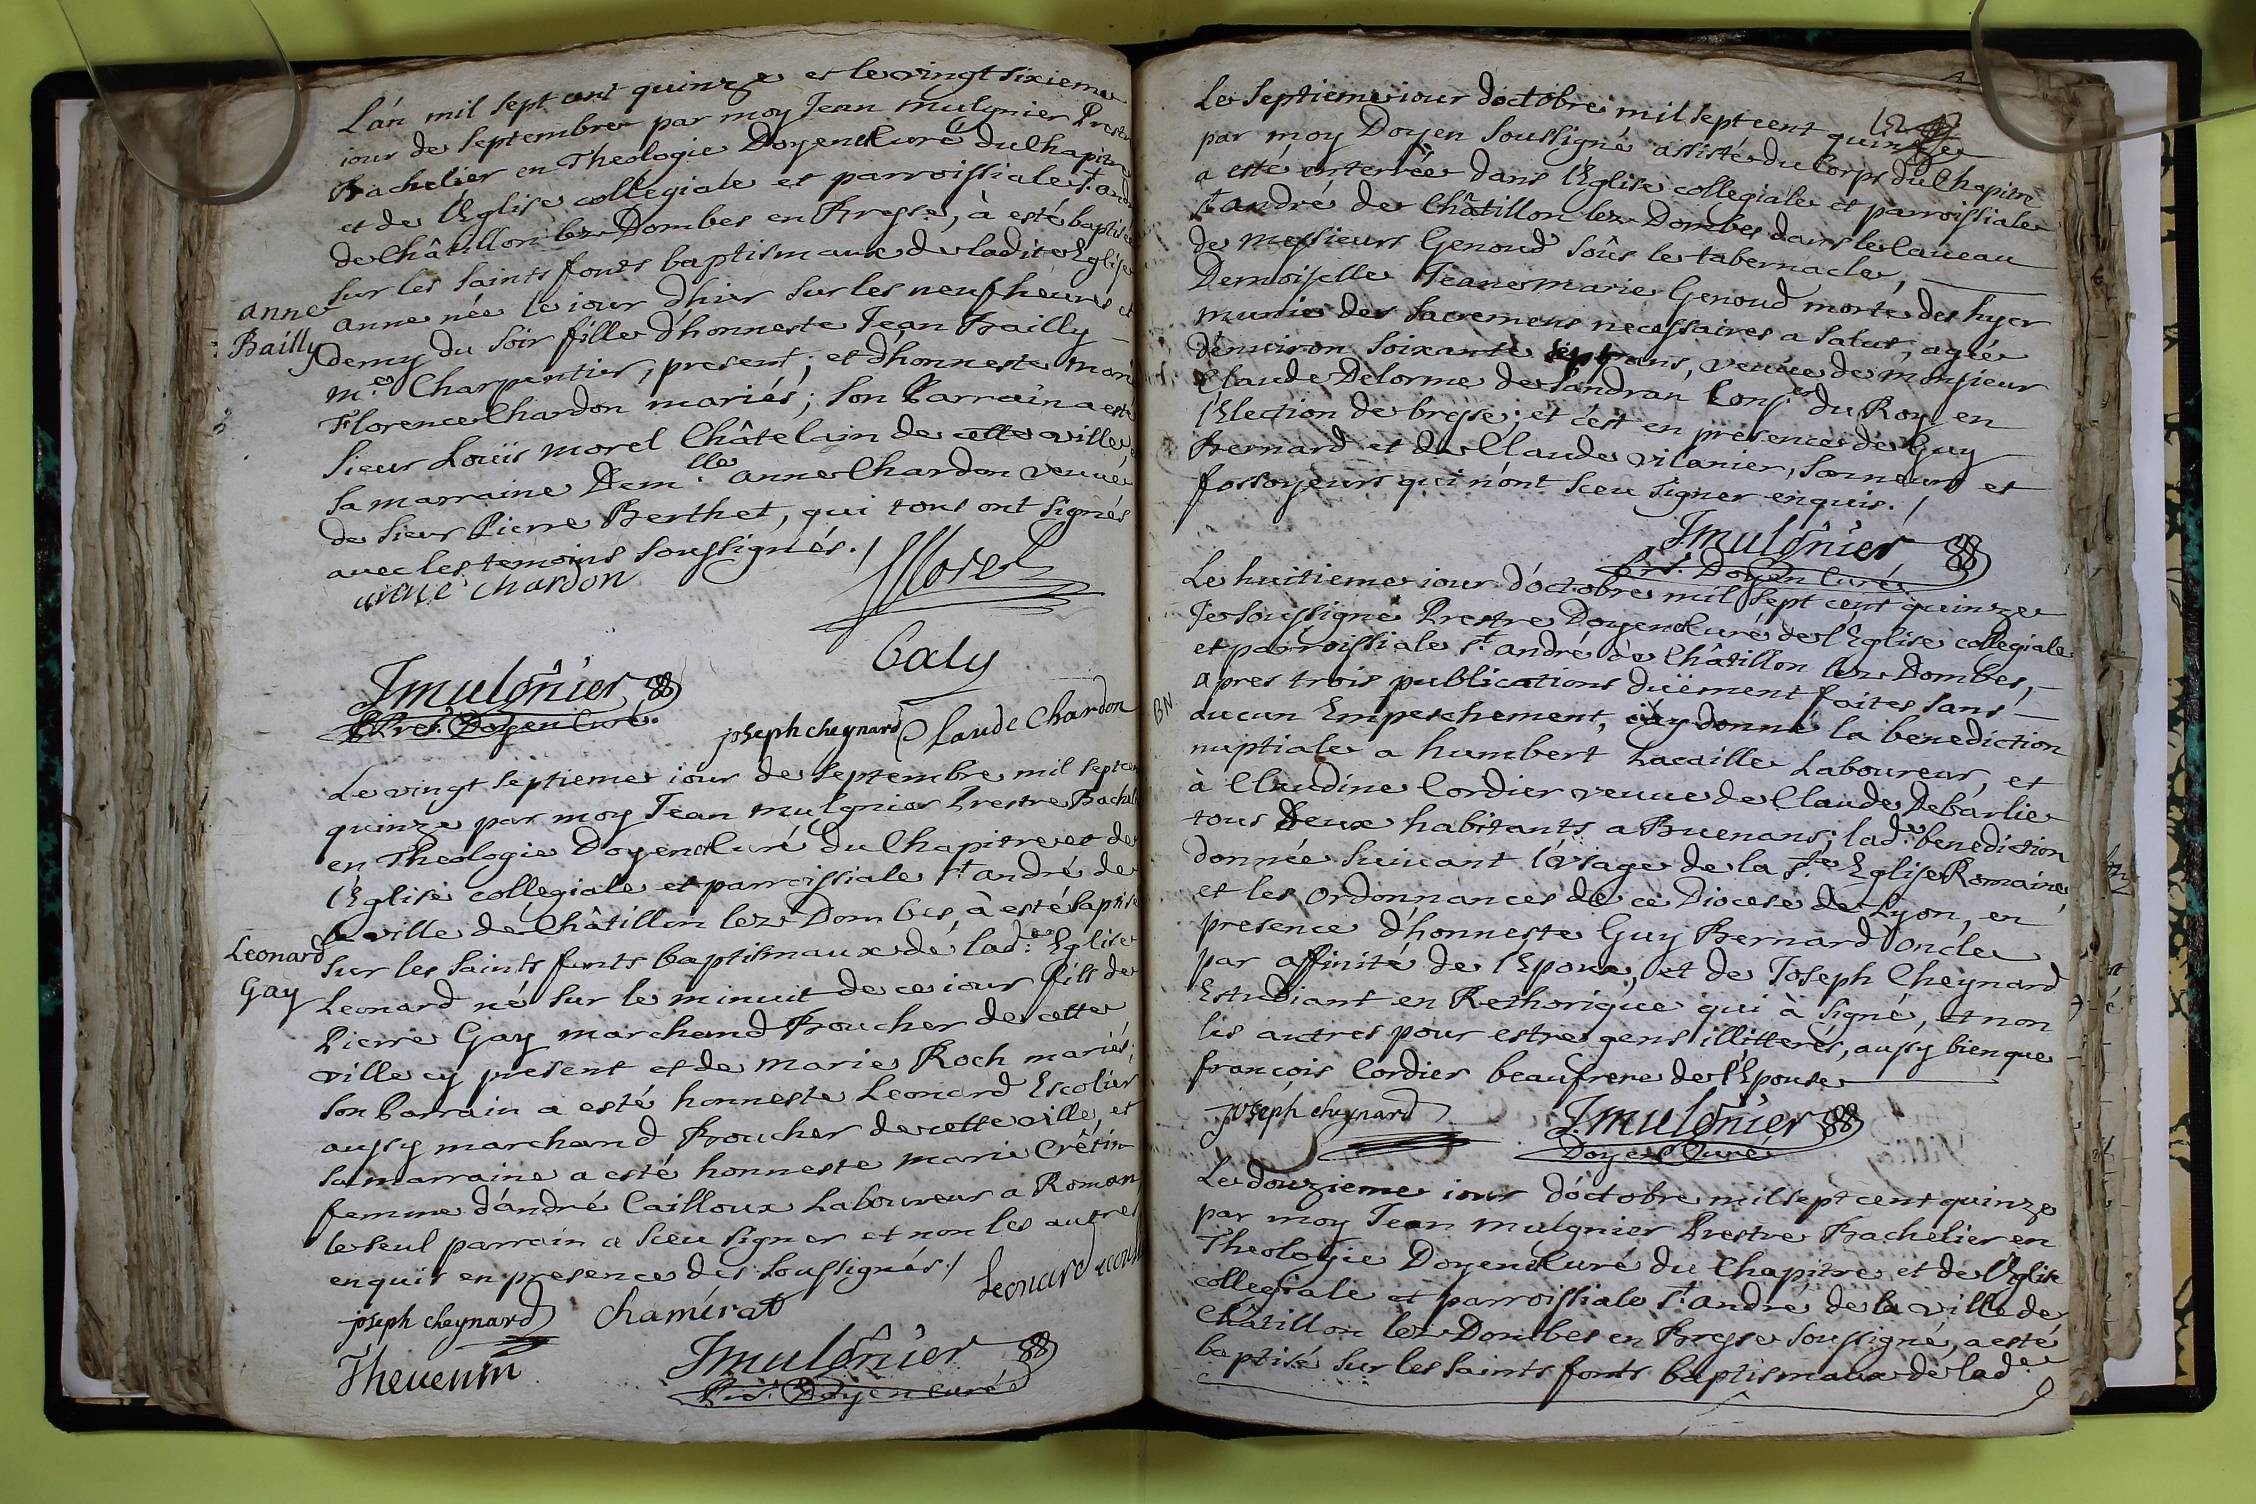 L'an mil sept cent quinze et le vingt sixieme
iour de Septembre par moy Jean mulgnier Prestre
Bachelier en Theologie Doyen & Curé du Chapitre
et de l'Eglise collegiale et parroissiale St. andré
de Châtillon lez Dombes en Bresse, à esté baptisée
sur les saints fonts baptismaux de ladite Eglise
anne née le iour d'hier sur les neuf heures et
demy du soir fille d'honneste Jean Bailly
me. Charpentier, present; et d'honneste marie
Florence Chardon mariés; son Parrain a esté
sieur Louïs morel Châtelain de cette ville,
sa marraine Demlle. anne Chardon veuve
de sieur Pierre Berthet, qui tous ont signés
avec les temoins soussignés./
anne
Bailly
anne chardon
Morel
Caly
Jmulgnier
Pres. Doyen Curé.
joseph cheynard Claude Chardon
Le vingt septieme iour de septembre mil sept cent
quinze par moy Jean mulgnier Prestre Bachelier
en Theologie Doyen & Curé du Chapitre et de
l'Eglise collegiale et parroissiale St. andré de
la ville de Châtillon lez Dombes, à esté baptisé
sur les saints fonts baptismaux de lad.e Eglise
Leonard né sur le minuit de ce iour fils de
Pierre Gay marchand Boucher de cette
ville cy present et de marie Roch mariés;
son Parrain a esté honneste Leonard Escolier
aussy marchand Boucher de cette ville, et
sa marraine a esté honneste marie Crêtin
femme d'andré Cailloux Laboureur a Romans
le seul parrain a sceu signer et non les autres
enquis en presence des soussignés./
Leonard
Gay
joseph cheynard chamerat Leonard
Thevenin
Jmulgnier
Pres. Doyen Curé
Le Septieme iour d'octobre mil sept cent quinze
par moy Doyen soussigné assisté du Corps du Chapitre
a esté enterrée dans l'Eglise collegiale et parroissiale
St. andré de Châtillon lez Dombes dans le caveau
de messieurs Genoud soûs le tabernacle,
Demoiselle Jeane marie Genoud morte des hyer
munie des sacremens necessaires a salut, agée
d'environ soixante sept ans, veuve de monsieur
Claude Delorme de Landran Conser. du Roy en
l'Election de bresse; et c'est en presence de Guy
Bernard et de Claude vilanier, sonneurs et
fossoyeurs qui n'ont sceu signer enquis./
Jmulgnier
Prs. Doyen Curé
Le huitieme iour d'octobre mil sept cent quinze
Je soussigné Prestre Doyen & Curé de l'Eglise collegiale
et parroissiale St. andré de Châtillon lez Dombes,
apres trois publications duëment faites sans
aucun Empeschement, ay donné la benediction
BN
nuptiale a humbert Lacaille Laboureur, et
à Claudine Cordier veuve de Claude Debarlie
tous Deux habitants a Buenans; lad.e benediction
donnée suivant l'usage de la ste. Eglise Romaine,
et les ordonnances de ce Diocese de Lyon, en
presence d'honneste Guy Bernard oncle
par affinité de l'Epoux, et de Joseph Cheynard
Estudiant en Rethorique qui à signé, et non
les autres pour estre gens illitterés, aussy bien que
françois Cordier beaufrere de l'Epouse
joseph cheynard Jmulgnier
Doyen Curé
Le douzieme iour d'octobre mil sept cent quinze
par moy Jean mulgnier Prestre Bachelier en
Theologie Doyen & Curé du Chapitre et de l'Eglise
collegiale et parroissiale St. andré de la ville de
Châtillon lez Dombes en Bresse soussigné, a esté
baptisé sur les saints fonts baptismaux de lad.e